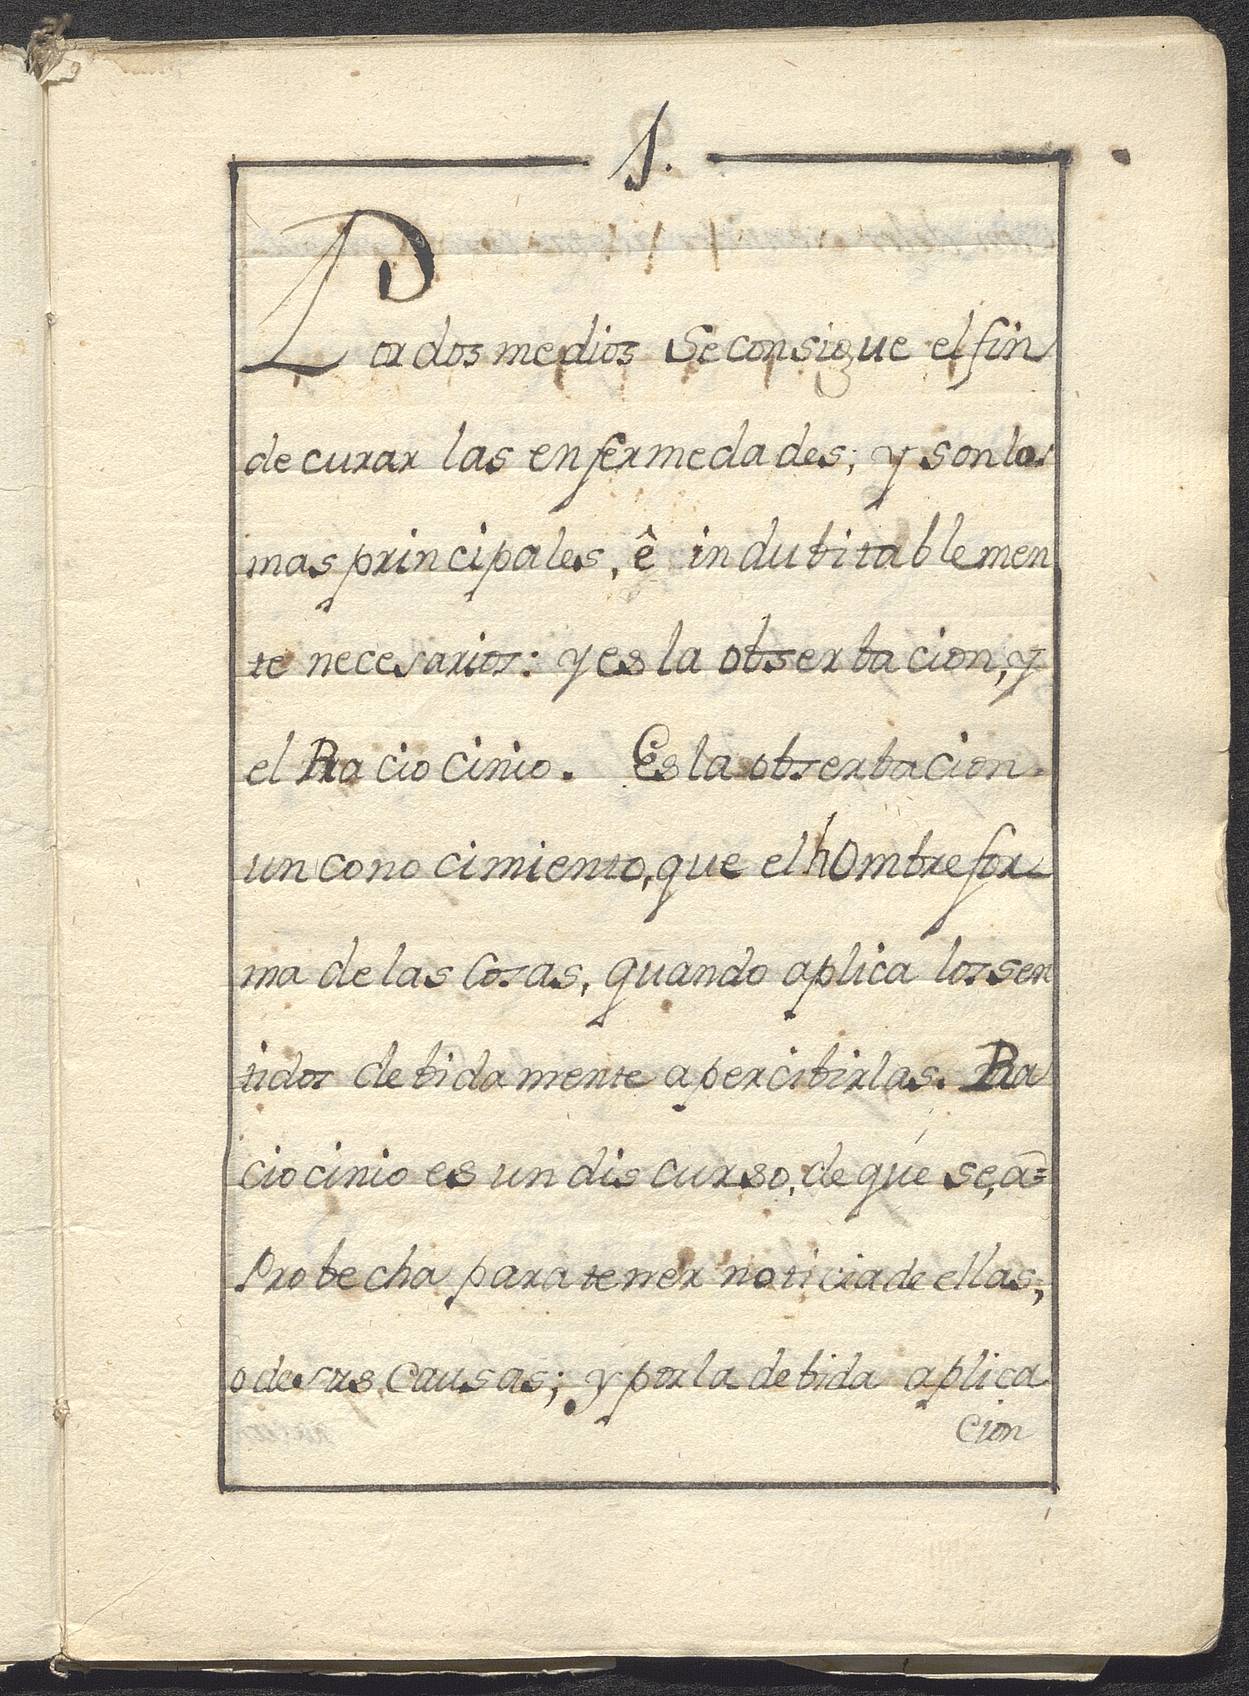 1.
Por dos medios Se consigue el fin
de curar las enfermedades; y son los
mas principales, ê indubitablemen
te necesarios: y es la obserbacion, y
el Raciocinio. Es la obserbacion
un conocimiento, que el hOmbre for
ma de las Cosas, quando aplica los sen
tidos debidamente a percibirlas. Ra
ciocinio es un discurso, de que se, a=
Probecha para tener noticia de ellas;
o de sus, Causas; y por la debida aplica
cion